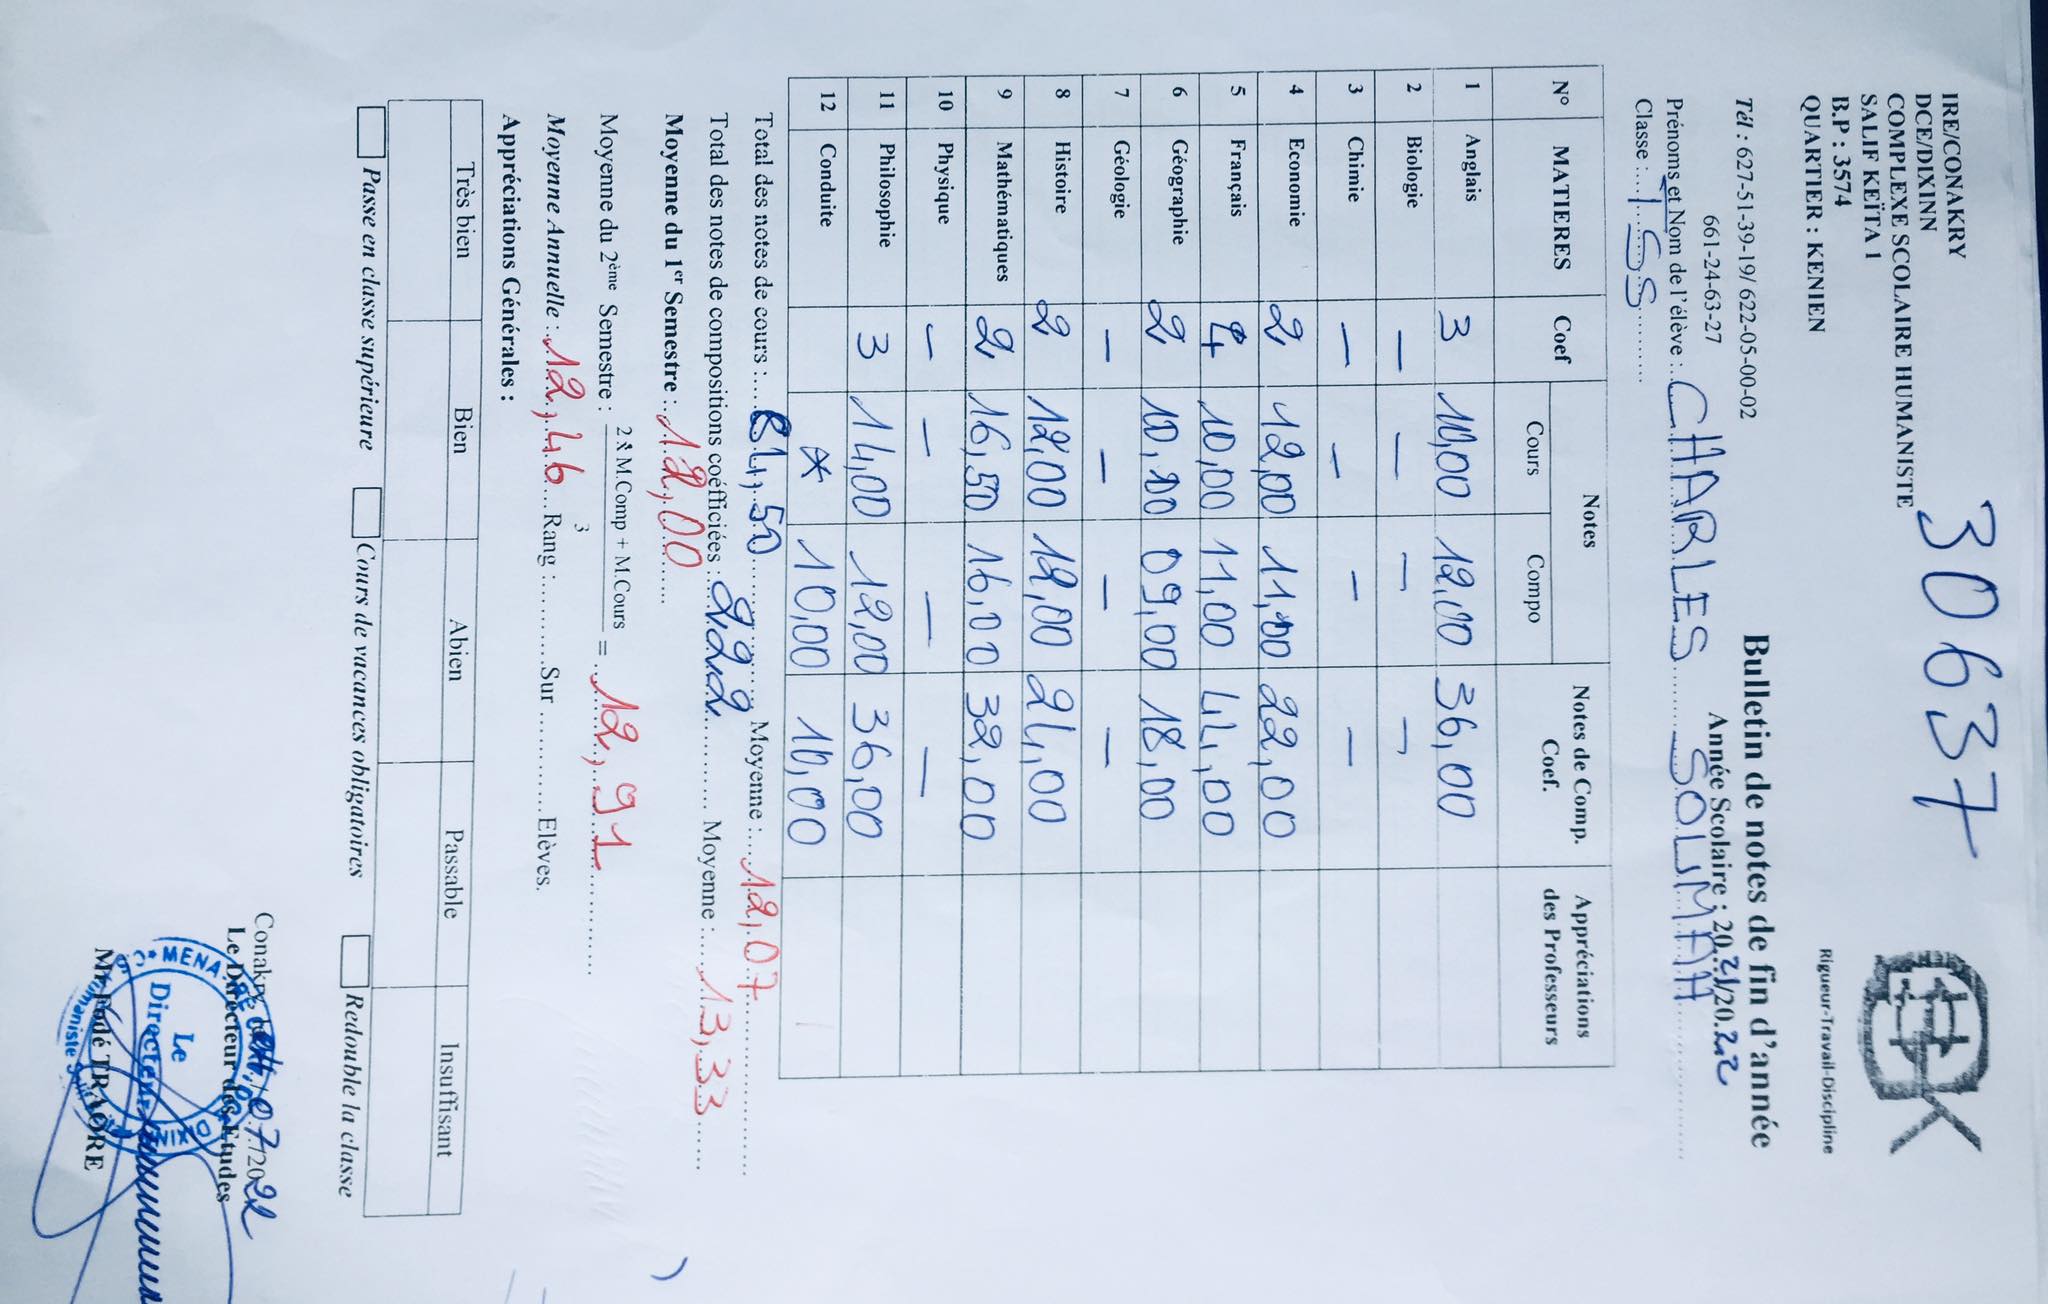 30637
IRE/CONAKRY
DCE/DIXINN
COMPLEXE SCOLAIRE HUMANISTE
SALIF KEÏTA 1
B.P : 3574
QUARTIER : KENIEN
Rigueur-Travail-Discipline
Bulletin de notes de fin d'année
Tél : 627-51-39-19/ 622-05-00-02
661-24-63-27
Année Scolaire : 2021/2022
Prénoms et Nom de l'élève : CHARLES SOUMAH
Classe :
N° MATIERES Coef Notes Notes de Comp. Coef. Appréciations des Professeurs
Cours Compo
1 Anglais 3 10,00 12,00 36,00
2 Biologie – – – –
3 Chimie – – – –
4 Economie 2 12,00 11,00 22,00
5 Français 4 10,00 11,00 44,00
6 Géographie 2 10,00 09,00 18,00
7 Géologie – – – –
8 Histoire 2 12,00 12,00 24,00
9 Mathématiques 2 16,50 16,00 32,00
10 Physique – – – –
11 Philosophie 3 14,00 12,00 36,00
12 Conduite * 10,00 10,00
Total des notes de cours : 84,50 Moyenne : 12,07
Total des notes de compositions coéfficiées : 222 Moyenne : 13,33
Moyenne du 1er Semestre : 12,00
Moyenne du 2ème Semestre : 2 X M.Comp + M.Cours / 3 = 12,91
Moyenne Annuelle : 12,46 Rang : Sur Elèves.
Appréciations Générales :
Très bien Bien Abien Passable Insuffisant
Passe en classe supérieure Cours de vacances obligatoires Redouble la classe
Conakry /07/2022
Le Directeur des Etudes
MENA
Le
Directeur
TRAORE